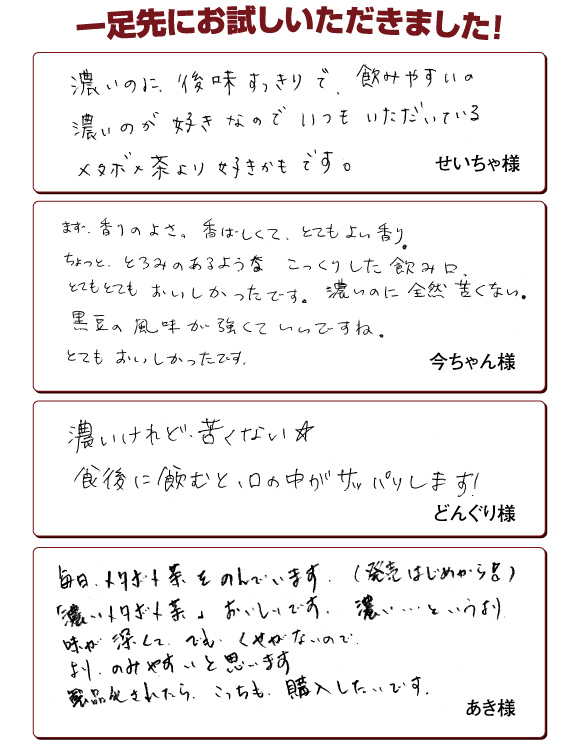 一足先にお試しいただきました!
濃いのに、後味すっきりで、飲みやすいの
濃いのが好きなので いつもいただいている
メタボメ茶より好きかもです。
せいちゃ様
まず、香りのよさ。香ばしくて、とてもよい香り。
ちょっと、とろみのあるような こっくりした飲み口、
とてもとても おいしかったです。濃いのに全然苦くない。
黒豆の風味が強くていいですね。
とてもおいしかったです。
今ちゃん様
濃いけれど、苦くない☆
食後に飲むと、口の中がサッパリします!
どんぐり様
毎日、メタボメ茶をのんでいます。(発売はじめから!!)
「濃いメタボメ茶」おいしいです。濃い…というより
味が深くて、でも、くせがないので、
より、のみやすいと思います
製品化されたら、こっちも、購入したいです。
あき様